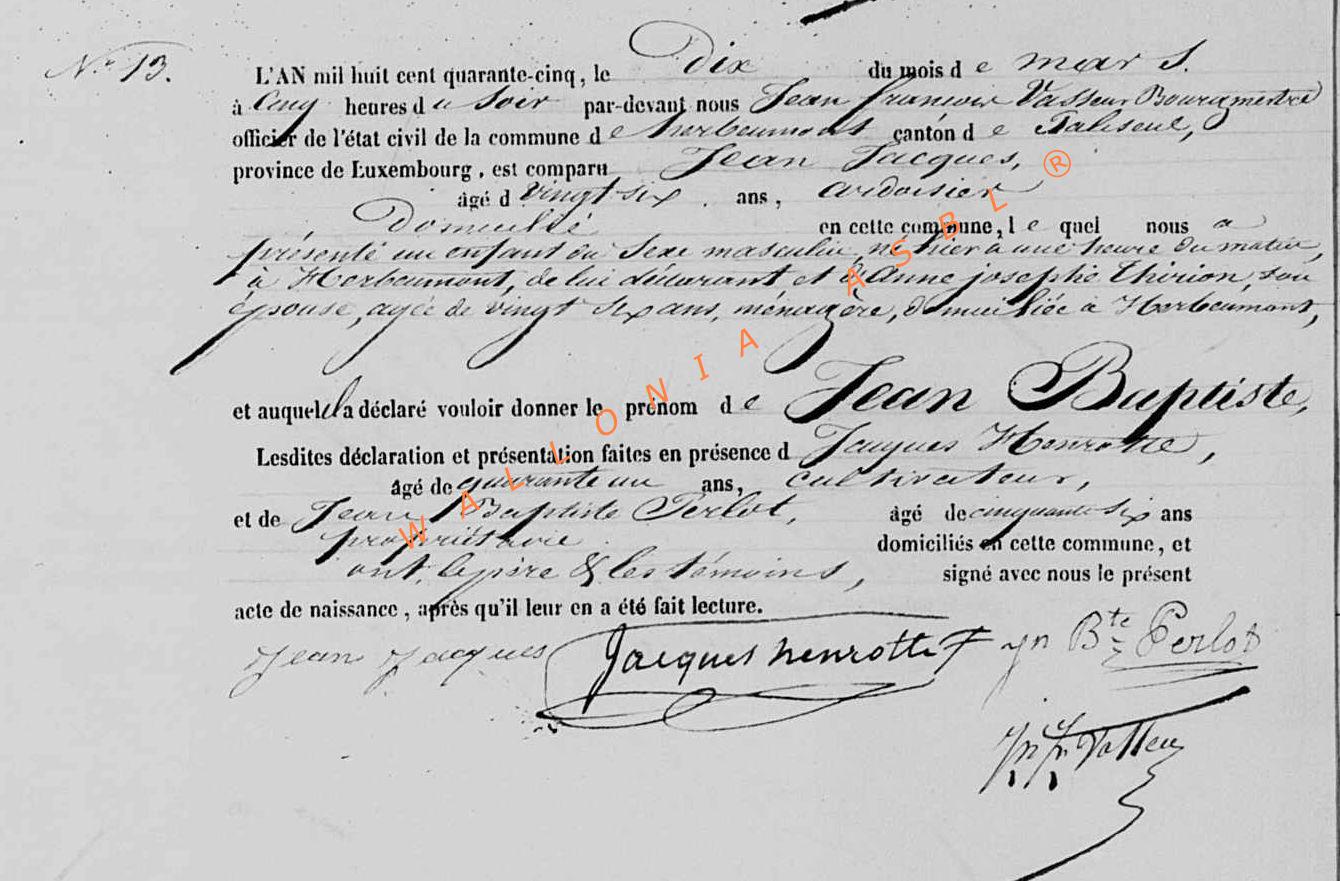 N° 13.
L'AN mil huit cent quarante-cinq, le Dix du mois de mars.
à Cinq heures du Soir par-devant nous Jean françois Vasseur Bourgmestre
officier de l'état civil de la commune de herbeumont canton de Paliseul,
province de Luxembourg, est comparu Jean Jacques,
âgé d vingt six ans, ardoisier
Domicilié en cette commune, le quel nous a
présenté un enfant du Sexe masculin, né hier à une heure du matin,
à Herbeumont, de lui déclarant et d'Anne josephe Thirion, son
épouse, agée de vingt six ans, ménagère, domiciliée à Herbeumont,
et auquel il a déclaré vouloir donner le prénom de Jean Baptiste,
Lesdites déclaration et présentation faites en présence d Jacques Henrotte,
âgé de quarante un ans, cultivateur,
et de Jean Baptiste Perlot, âgé de cinquante six ans
propriétaire domiciliés en cette commune, et
ont, le père & les témoins, signé avec nous le présent
acte de naissance, après qu'il leur en a été fait lecture.
Jean Jacques Jacques henrotte jn Bte Perlot
Jn fr Vasseur
WALLONIA ASBL ®